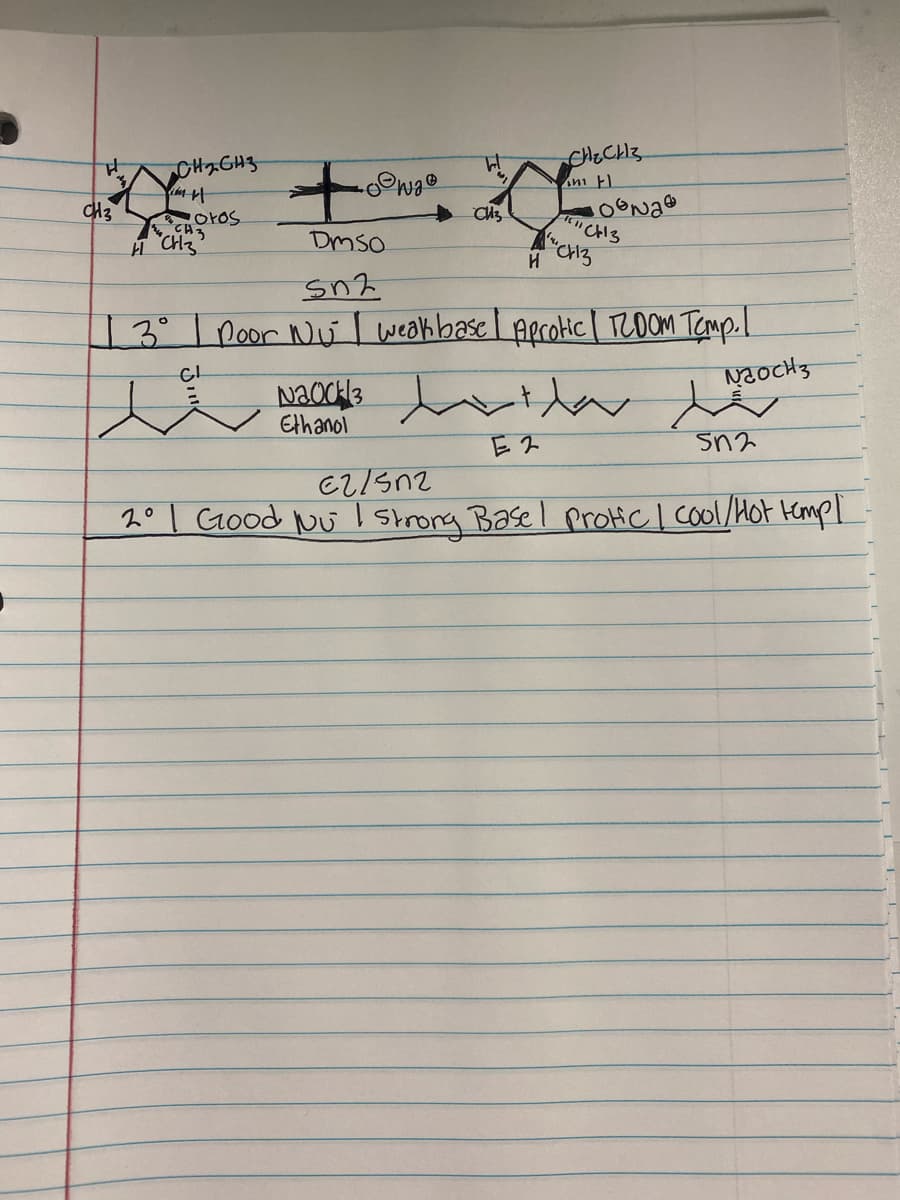 H CH2CH3
H
CH3 OTOS
CH3
H CH3
O⊖Na⊕
DMSO
H CH2CH3
H
CH3 O⊖Na⊕
CH3
H CH3
Sn2
| 3° | Poor Nu | weak base | Aprotic | ROOM Temp. |
Cl
NaOCH3
Ethanol
+
E2
NaOCH3
Sn2
E2/Sn2
2° | Good Nu | Strong Base | protic | cool/Hot temp |